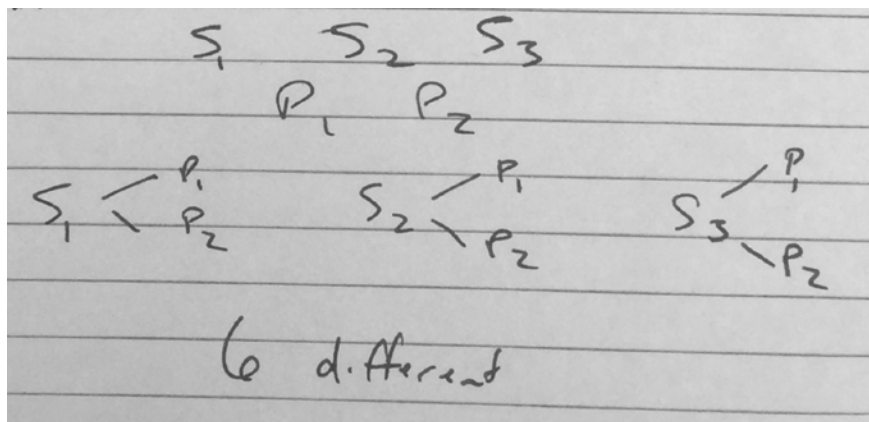 S₁ S₂ S₃
P₁ P₂
S₁ P₁ P₂ S₂ P₁ P₂ S₃ P₁ P₂
6 different